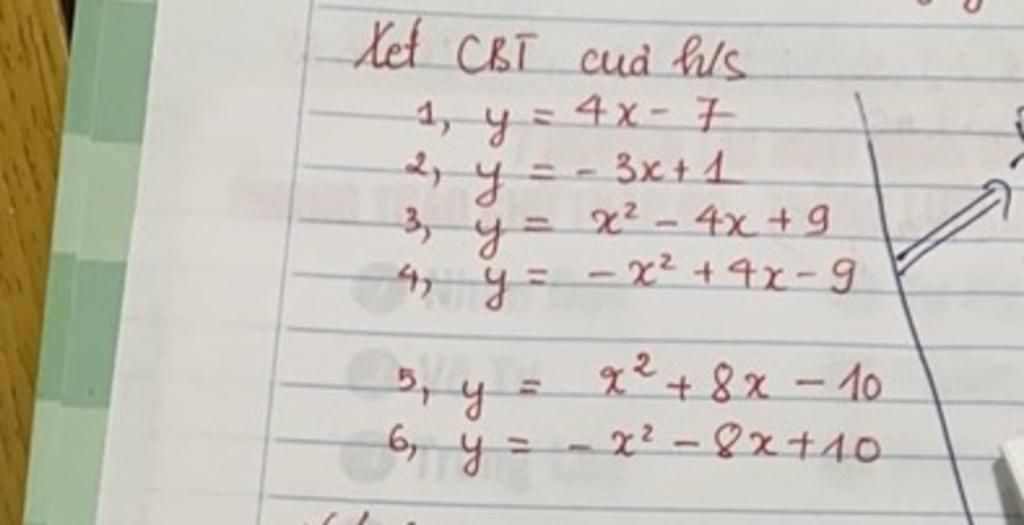 Xét CBT của h/s
1, y = 4x - 7
2, y = - 3x + 1
3, y = x² - 4x + 9
4, y = - x² + 4x - 9
5, y = x² + 8x - 10
6, y = - x² - 8x + 10